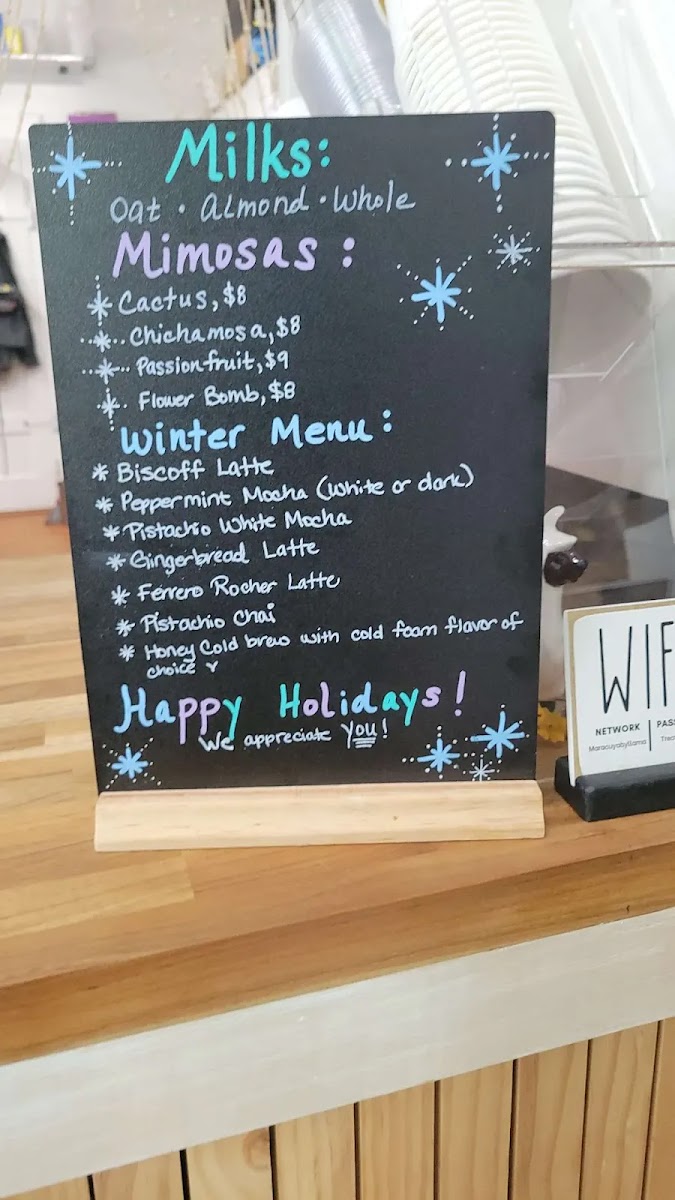 Milks:
Oat • Almond • Whole
Mimosas:
* Cactus, $8
* Chichamosa, $8
* Passionfruit, $9
* Flower Bomb, $8
Winter Menu:
* Biscoff Latte
* Peppermint Mocha (white or dark)
* Pistachio White Mocha
* Gingerbread Latte
* Ferrero Rocher Latte
* Pistachio Chai
* Honey Cold brew with cold foam flavor of
choice
Happy Holidays!
We appreciate You!
WIF
NETWORK
Maracuyabyllama